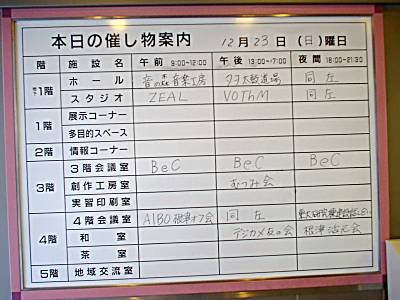 本日の催し物案内 12月23日(日)曜日
階 施設名 午前 9:00~12:00 午後 13:00~17:00 夜間 18:00~21:30
1階 ホール 音の森音楽工房 道場 同左
スタジオ ZEAL VOThM 同左
1階 展示コーナー
多目的スペース
2階 情報コーナー
3階 3階会議室 BeC BeC BeC
創作工房室 むつみ会
実習印刷室
4階 4階会議室 AIBO 根津オフ会 同左
和室 デジカメ友の会 根津
茶室
5階 地域交流室